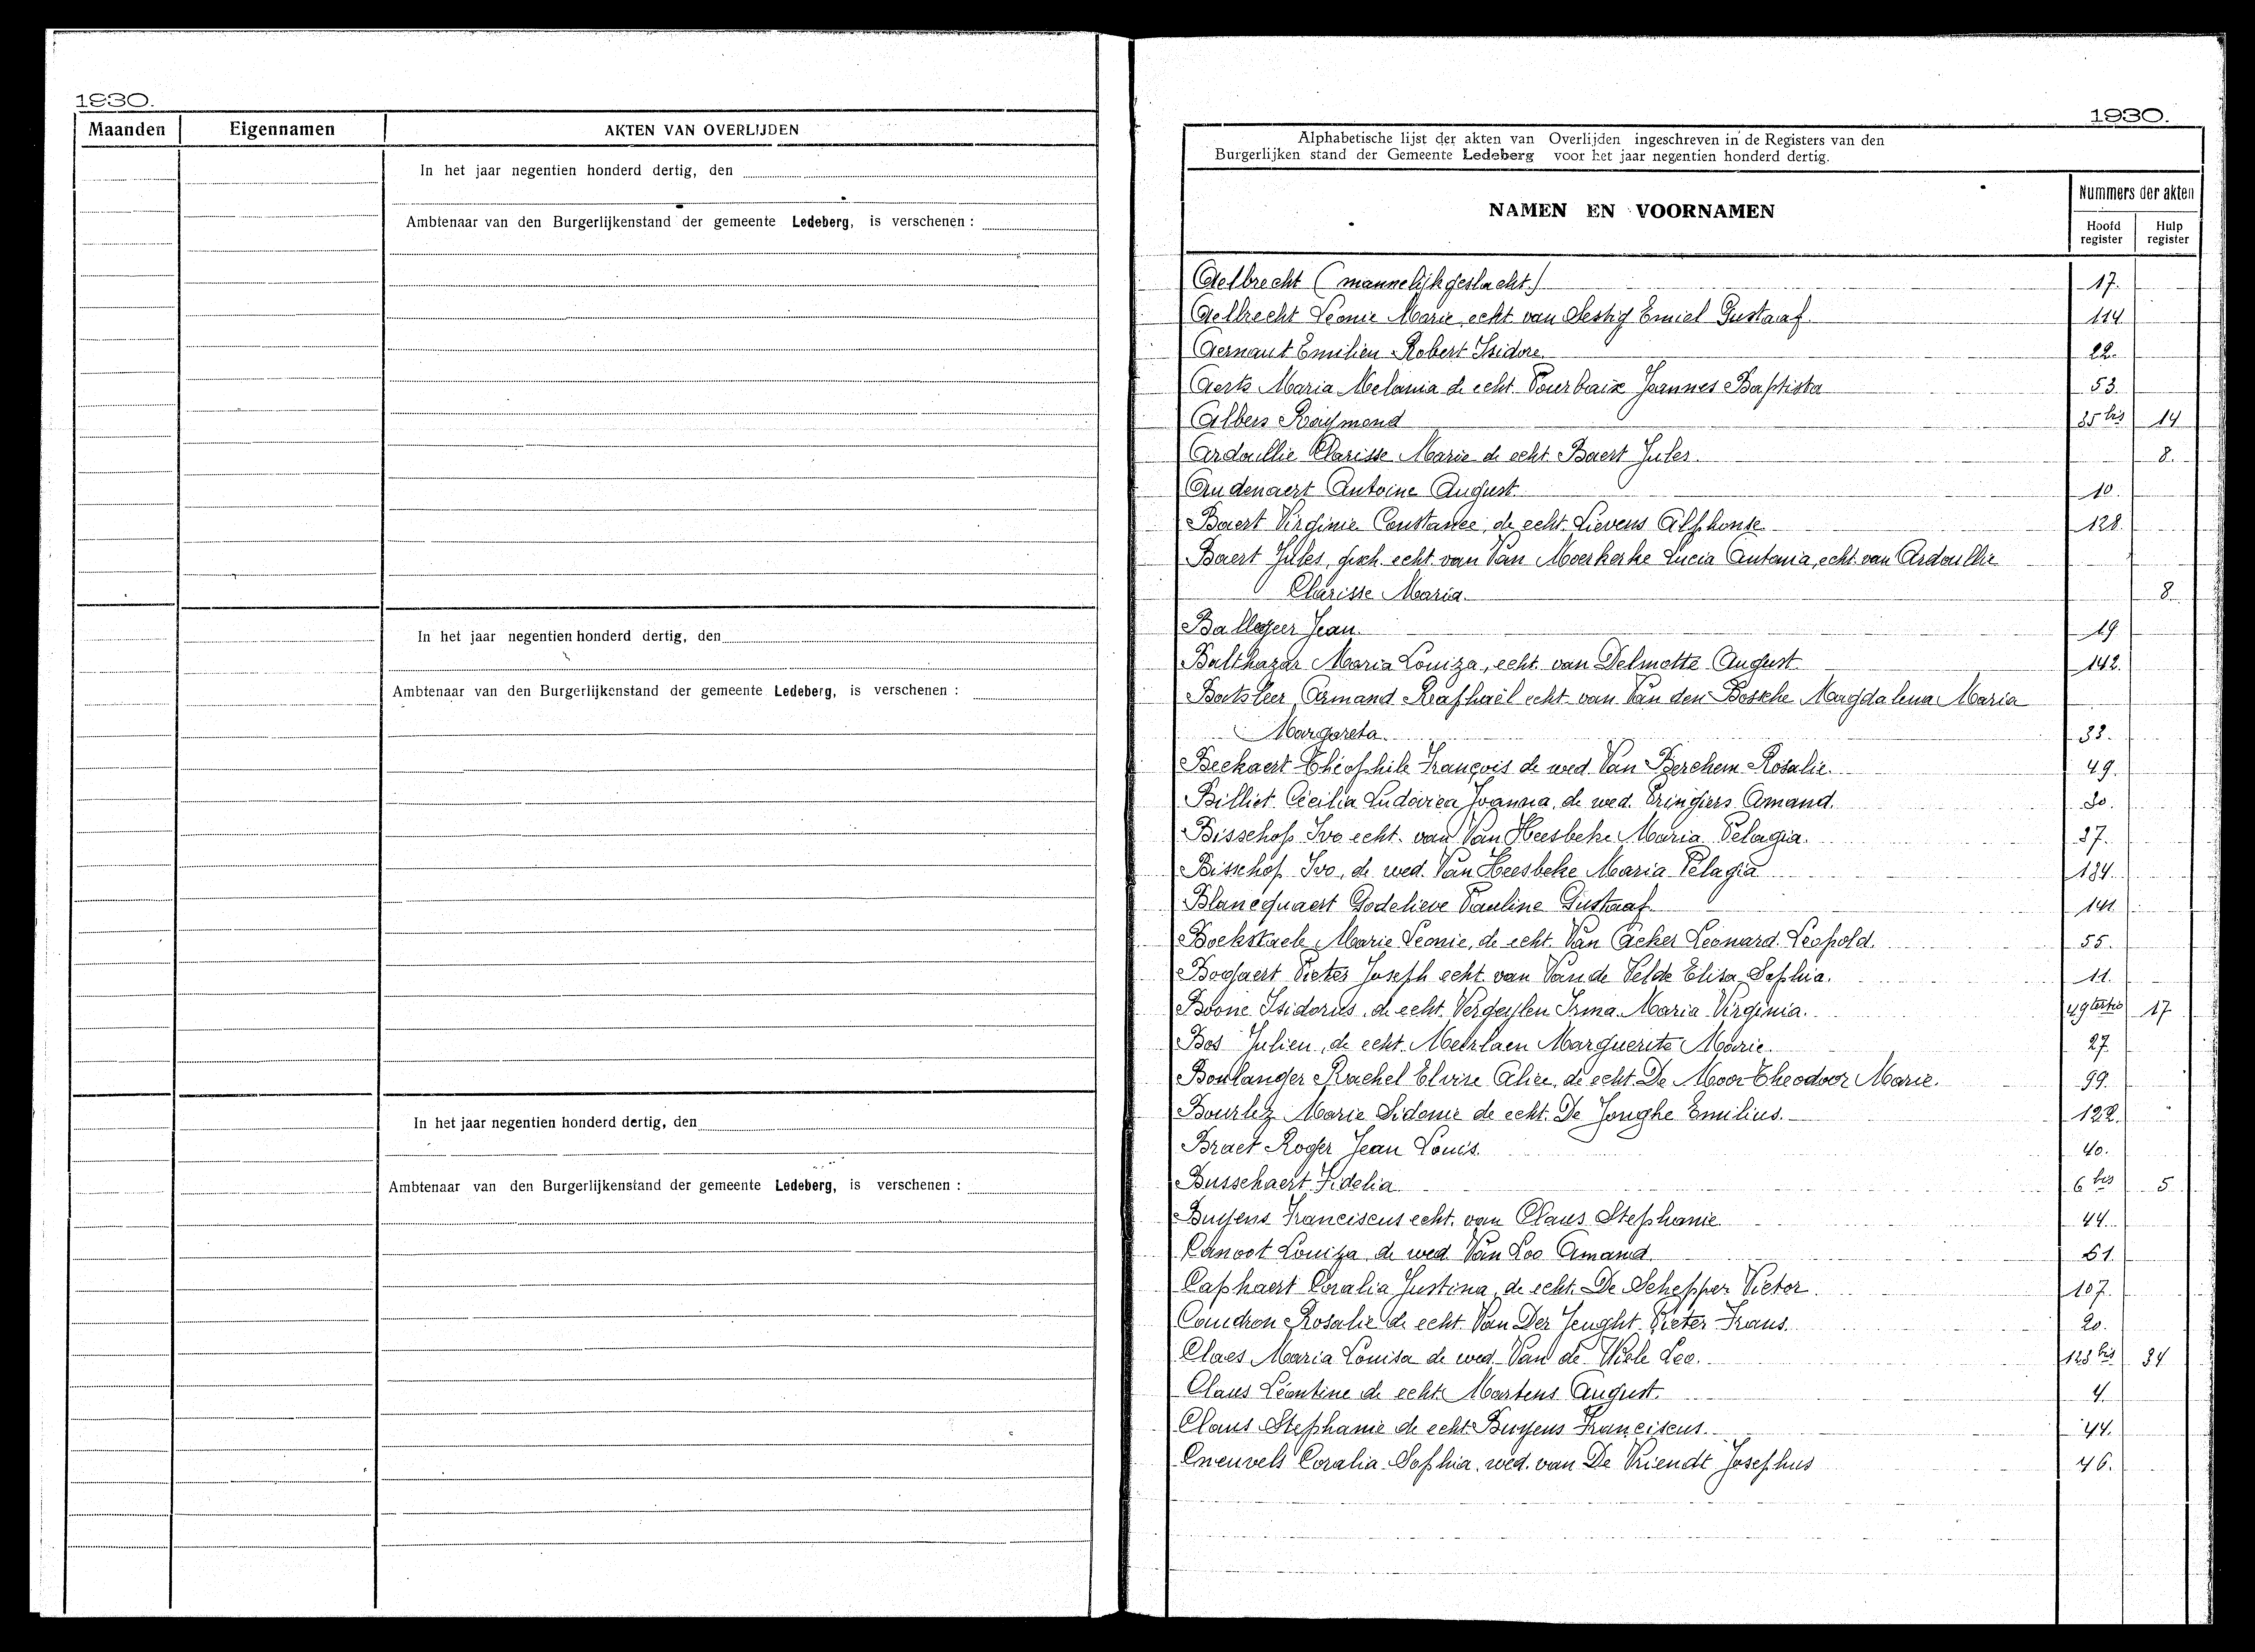 1930.
Maanden Eigennamen AKTEN VAN OVERLIJDEN
In het jaar negentien honderd dertig, den
Ambtenaar van den Burgerlijkenstand der gemeente Ledeberg, is verschenen :
In het jaar negentien honderd dertig, den
Ambtenaar van den Burgerlijkenstand der gemeente Ledeberg, is verschenen :
In het jaar negentien honderd dertig, den
Ambtenaar van den Burgerlijkenstand der gemeente Ledeberg, is verschenen :
1930.
Alphabetische lijst der akten van Overlijden ingeschreven in de Registers van den
Burgerlijken stand der Gemeente Ledeberg voor het jaar negentien honderd dertig.
NAMEN EN VOORNAMEN
Nummers der akten
Hoofd register Hulp register
Aelbrecht (mannelijk geslacht) 17.
Aelbrecht Leonie Marie echt van Sestig Emiel Gustaaf 114
Aernaut Emilien Robert Isidore. 22.
Aerts Maria Melania de echt. Pourbaix Joannes Baptista 53.
Albers Raymond 35 bis 14
Ardaillie Clarisse Marie de echt Baert Jules. 8.
Audenaert Antoine August 10.
Baert Virginie Constance, de echt. Lievens Alphonse 128.
Baert Jules, gesch. echt. van Van Moerkerke Lucia Antonia, echt. van Ardaillie
Clarisse Maria. 8
Ballegeer Jean. 19
Balthazar Maria Louiza, echt. van Delmotte August 142.
Baetsleer Armand Raphaël echt van Van den Bossche Magdalena Maria
Margareta. 33.
Beekaert Théophile François de wed. Van Berchem Rosalie. 49.
Billiet Cécilia Ludovica Joanna, de wed. Eringiers Amand. 30.
Bisschop Ivo echt. van Van Heesbeke Maria Pelagia. 37.
Bisschop Ivo, de wed. Van Heesbeke Maria Pelagia 134.
Blancquaert Godelieve Pauline Gustaaf 141
Bockstaele Marie Leonie, de echt. Van Acker Leonard Leopold. 55.
Bogaert Pieter Joseph echt. van Van de Velde Elisa Sophia. 11.
Boone Isidorus, de echt. Vergeylen Irma Maria Virginia. 49 tertio 17
Bos Julien, de echt. Meirlaen Marguerite Marie. 27
Boulanger Rachel Elvire Alice, de echt. De Moor Theodoor Marie. 99.
Bourlez Marie Sidonie de echt. De Jonghe Emilius. 122.
Braet Roger Jean Louis. 40.
Busschaert Fidelia. 6 bis 5
Buysens Franciscus echt. van Claus Stephanie. 44.
Canoot Louiza de wed. Van Loo Amand. 61
Caphaert Coralia Justina, de echt. De Schepper Victor. 107.
Coudron Rosalie de echt. Van Der Jeught Pieter Frans. 20.
Claes Maria Louisa de wed. Van de Wiele Leo. 123 bis 34
Claus Léontine de echt. Martens August. 4
Claus Stephanie de echt. Buysens Franciscus. 44.
Cneuvels Coralia Sophia, wed. van De Vriendt Josephus 46.